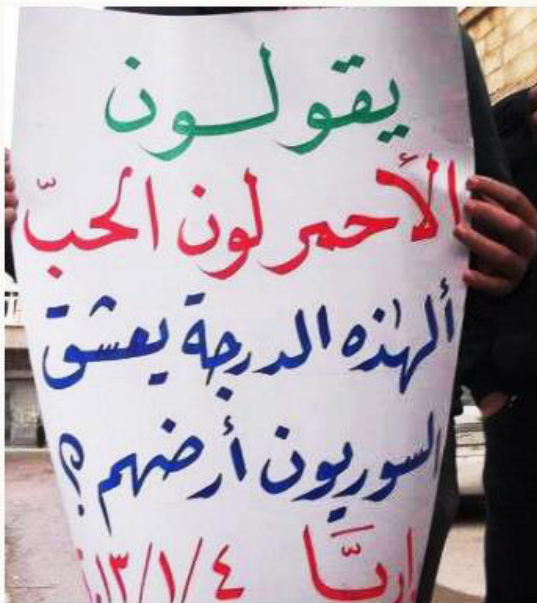 يقولون
الأحمر لون الحبّ
ألهذه الدرجة يعشق
السوريون أرضهم؟
٤/١/١٣